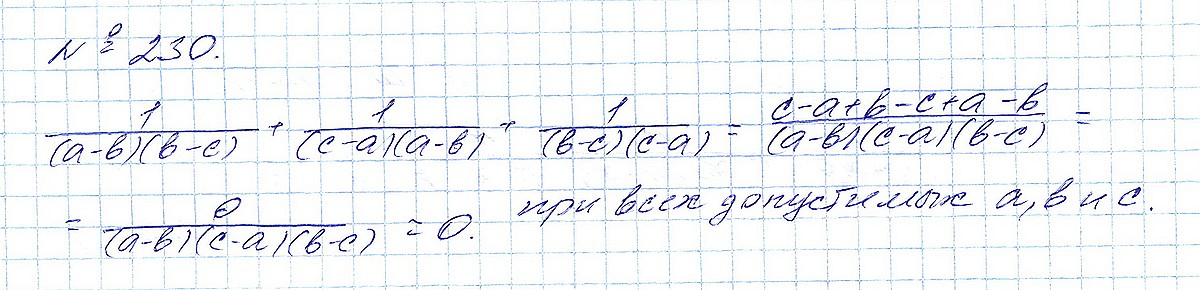 № 230.
1/((a-b)(b-c)) + 1/((c-a)(a-b)) + 1/((b-c)(c-a)) = (c-a+b-c+a-b)/((a-b)(c-a)(b-c)) =
= 0/((a-b)(c-a)(b-c)) = 0. при всех допустимых a, b и c.